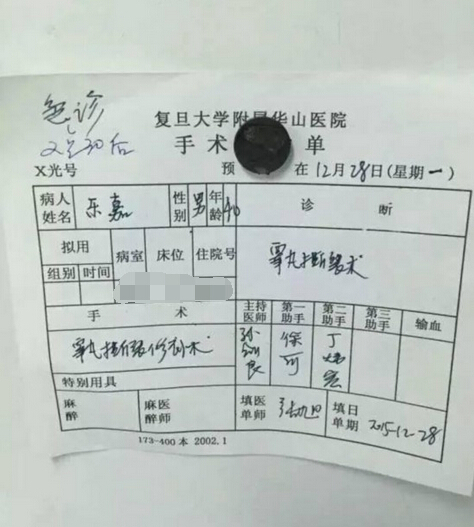 急诊
复旦大学附属华山医院
手术 单
X光号 预 在12月28日(星期一)
病人姓名 乐嘉 性别 男 年龄 40 诊断
拟用 病室 床位 住院号
组别 时间
手术 主持医师 第一助手 第二助手 第三助手 输血
睾丸 术
睾丸 修 术
徐可
丁
特别用具
麻醉 麻醉医师 填单医师 张旭 填单日期 2015-12-28
173-400本 2002.1